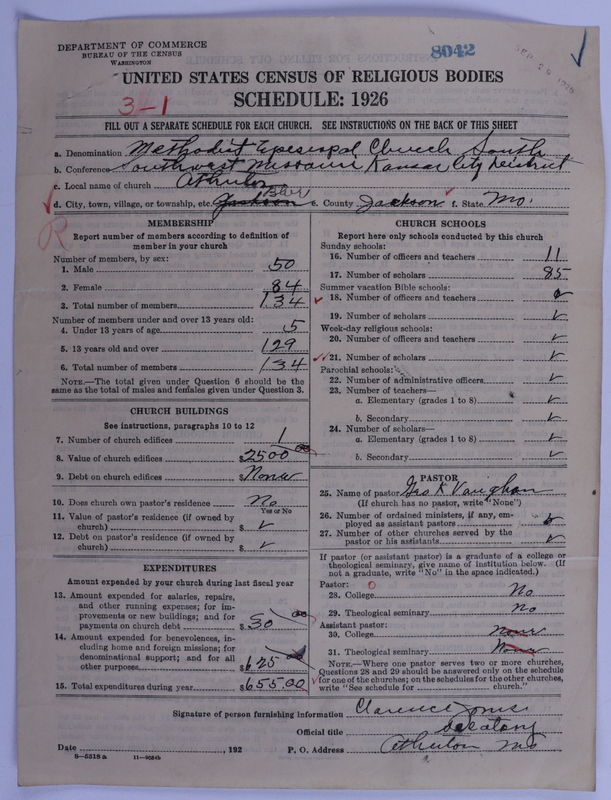 DEPARTMENT OF COMMERCE
BUREAU OF THE CENSUS
WASHINGTON
8042
SEP 29 1926
UNITED STATES CENSUS OF RELIGIOUS BODIES
3-1
SCHEDULE: 1926
FILL OUT A SEPARATE SCHEDULE FOR EACH CHURCH. SEE INSTRUCTIONS ON THE BACK OF THIS SHEET
a. Denomination Methodist Episcopal Church South
b. Conference Southwest Missouri Kansas City District
c. Local name of church Atherton
d. City, town, village, or township, etc. Jackson Blue e. County Jackson f. State Mo.
R
MEMBERSHIP
Report number of members according to definition of member in your church
Number of members, by sex:
1. Male 50
2. Female 84
3. Total number of members 134
Number of members under and over 13 years old:
4. Under 13 years of age 5
5. 13 years old and over 129
6. Total number of members 134
NOTE.—The total given under Question 6 should be the
same as the total of males and females given under Question 3.
CHURCH BUILDINGS
See instructions, paragraphs 10 to 12
7. Number of church edifices 1
8. Value of church edifices $2500 00
9. Debt on church edifices $None
10. Does church own pastor's residence No
Yes or No
11. Value of pastor's residence (if owned by
church) $ ✓
12. Debt on pastor's residence (if owned by
church) $ ✓
EXPENDITURES
Amount expended by your church during last fiscal year
13. Amount expended for salaries, repairs,
and other running expenses; for im-
provements or new buildings; and for
payments on church debt $30 00
14. Amount expended for benevolences, in-
cluding home and foreign missions; for
denominational support; and for all
other purposes $625
15. Total expenditures during year $655.00
CHURCH SCHOOLS
Report here only schools conducted by this church
Sunday schools:
16. Number of officers and teachers 11
17. Number of scholars 85
Summer vacation Bible schools:
18. Number of officers and teachers
19. Number of scholars ✓
Week-day religious schools:
20. Number of officers and teachers ✓
21. Number of scholars ✓
Parochial schools:
22. Number of administrative officers ✓
23. Number of teachers—
a. Elementary (grades 1 to 8) ✓
b. Secondary ✓
24. Number of scholars—
a. Elementary (grades 1 to 8) ✓
b. Secondary ✓
PASTOR
25. Name of pastor Geo K Vaughan
(If church has no pastor, write "None")
26. Number of ordained ministers, if any, em-
ployed as assistant pastors
27. Number of other churches served by the
pastor or his assistants ✓
If pastor (or assistant pastor) is a graduate of a college or
theological seminary, give name of institution below. (If
not a graduate, write "No" in the space indicated.)
Pastor: 0
28. College No
29. Theological seminary No
Assistant pastor:
30. College None
31. Theological seminary None
NOTE.—Where one pastor serves two or more churches,
Questions 28 and 29 should be answered only on the schedule
for one of the churches; on the schedules for the other churches,
write "See schedule for church."
Signature of person furnishing information Clarence Jones
Official title
Date , 192 P. O. Address Atherton Mo
8—5518a 11—9054b